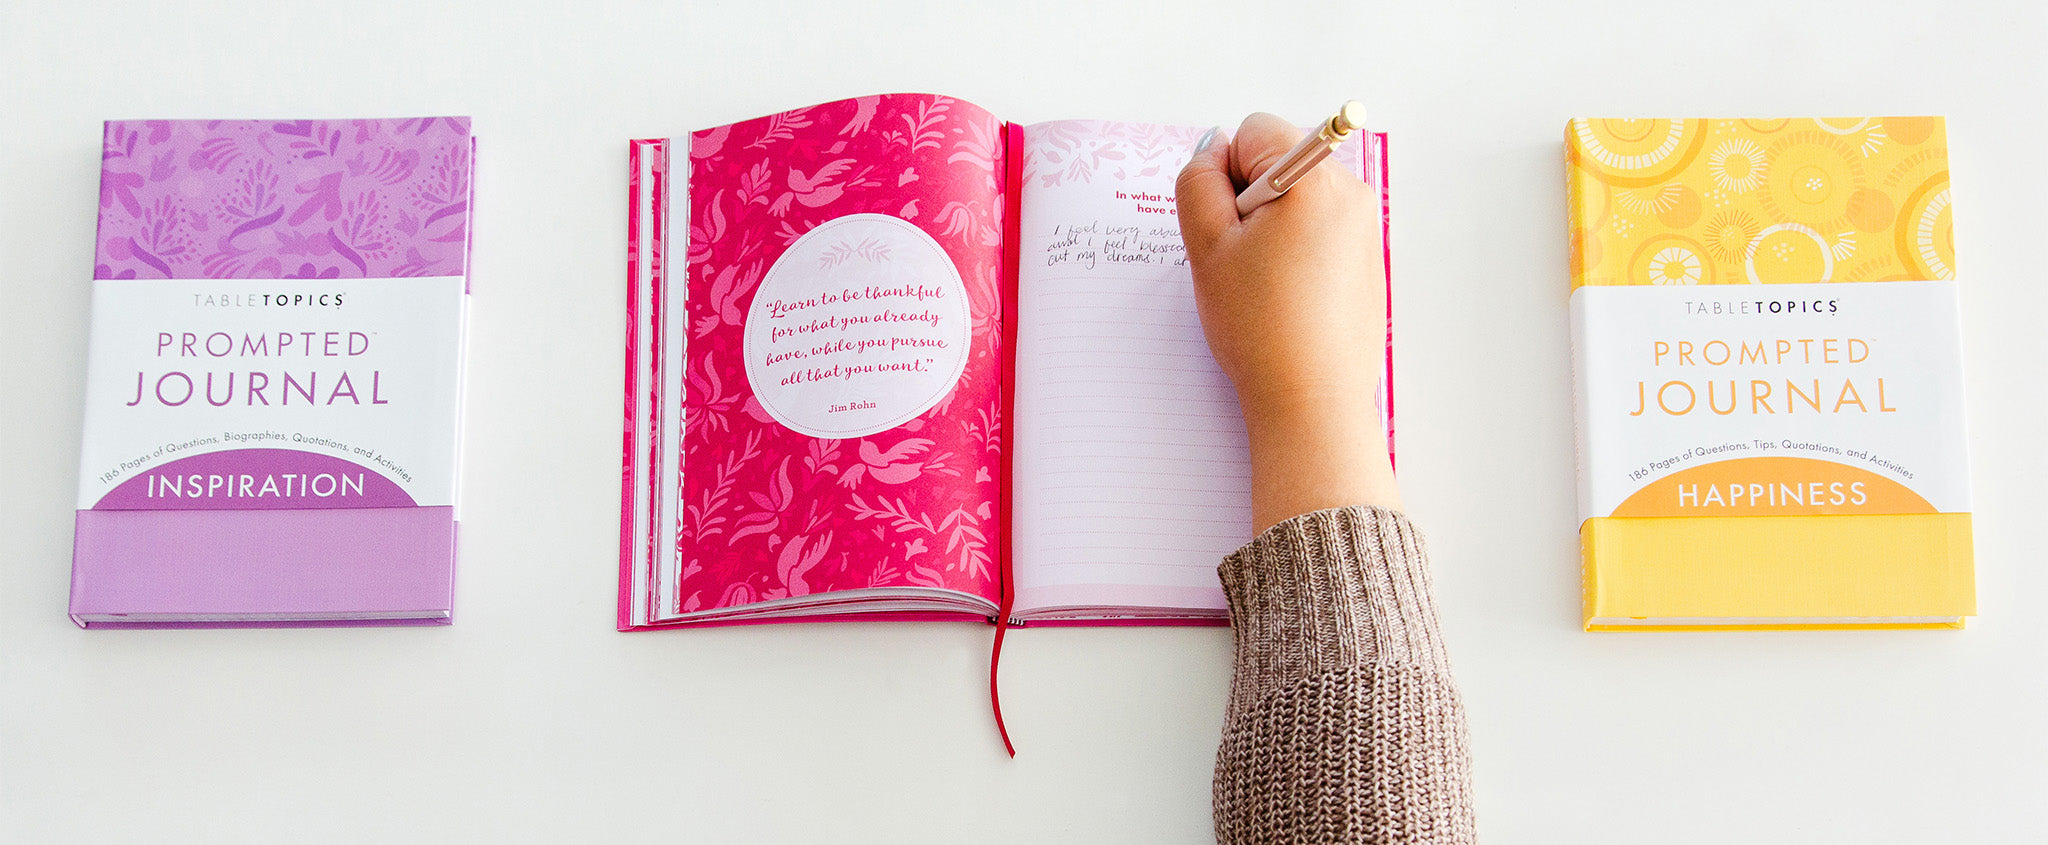 TABLETOPICS®
PROMPTED™
JOURNAL
186 Pages of Questions, Biographies, Quotations, and Activities
INSPIRATION
“Learn to be thankful
for what you already
have, while you pursue
all that you want.”
Jim Rohn
In what w
have e
I feel very
and I feel blessed
out my dreams. I
TABLETOPICS®
PROMPTED™
JOURNAL
186 Pages of Questions, Tips, Quotations, and Activities
HAPPINESS